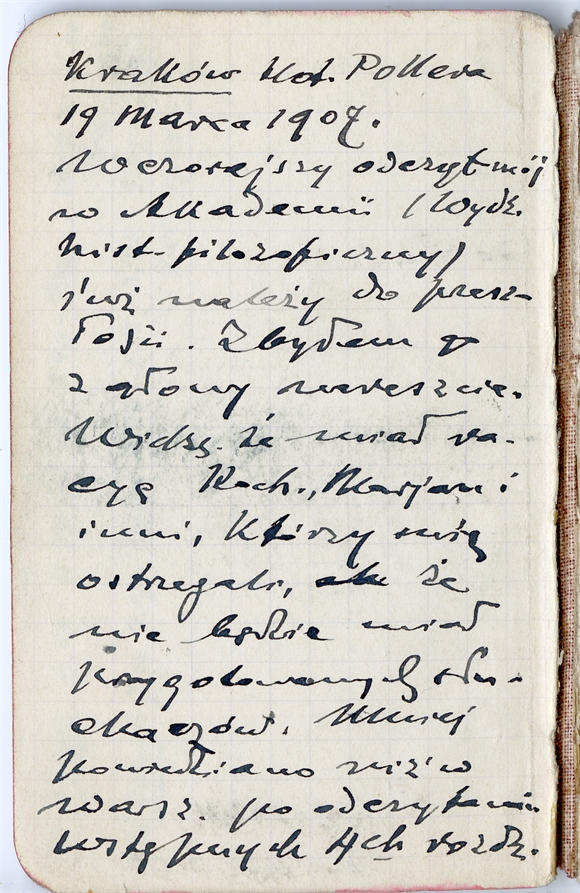 Kraków Hot. Pollera
19 Marca 1907.
Wczorajszy odczyt mój
w Akademii (Wydz.
hist-filozoficzny)
już należy do przesz-
łości. Zbyłem go
z głowy nareszcie.
Widzę że miał ra-
cyę Koch., Marjan i
inni, którzy mię
ostrzegali, że
nie będzie miał
przygotowanych słu-
chaczów. Mniej
powiedziano niż w
warsz. po odczytaniu
wstępnych 4ch rozdz.